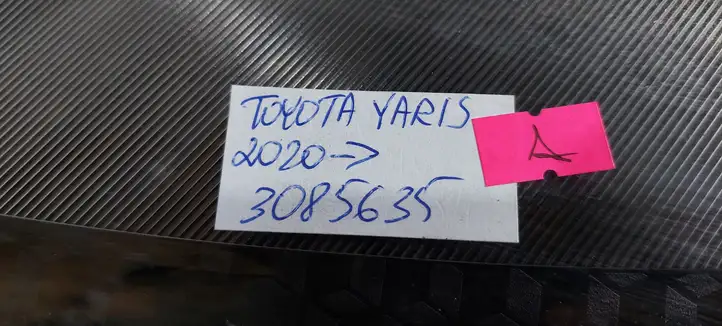 TOYOTA YARIS
2020->
3085635
A